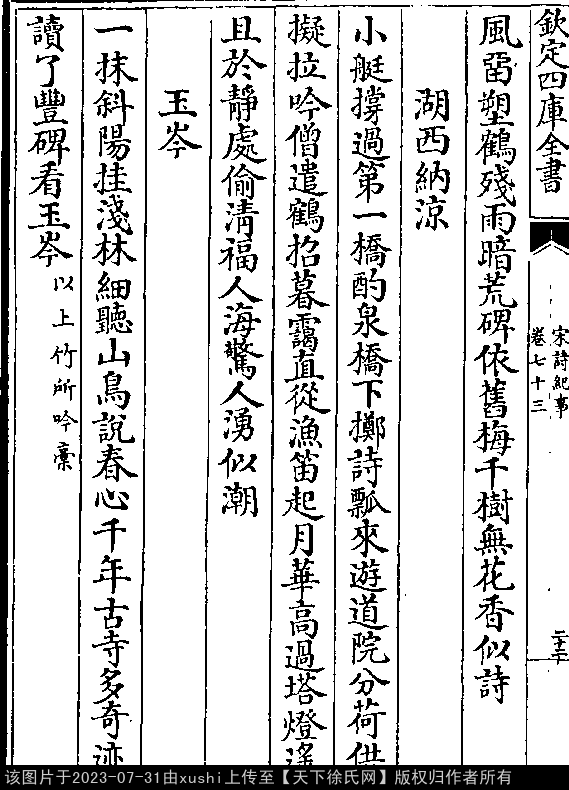 欽定四庫全書
宋詩紀事
卷七十三
風畱塑鶴殘雨暗荒碑依舊梅千樹無花香似詩
湖西納涼
小艇撐過第一橋酌泉橋下擲詩瓢來遊道院分荷供
擬拉吟僧遣鶴招暮靄直從漁笛起月華高過塔燈遙
且於靜處偷淸福人海驚人湧似潮
玉岑
一抹斜陽挂淺林細聽山鳥說春心千年古寺多奇迹
讀了豐碑看玉岑以上竹所吟稾
该图片于2023-07-31由xushi上传至【天下徐氏网】版权归作者所有